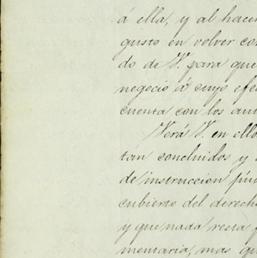 á ella, y al hacer
gusto en volver con
do de V. para que
negocio á cuyo efec
cuenta con los an
Verá V. en ello
tan concluidos y
de instruccion pu
cubierto del derech
y que nada resta
mentaria, mas qu